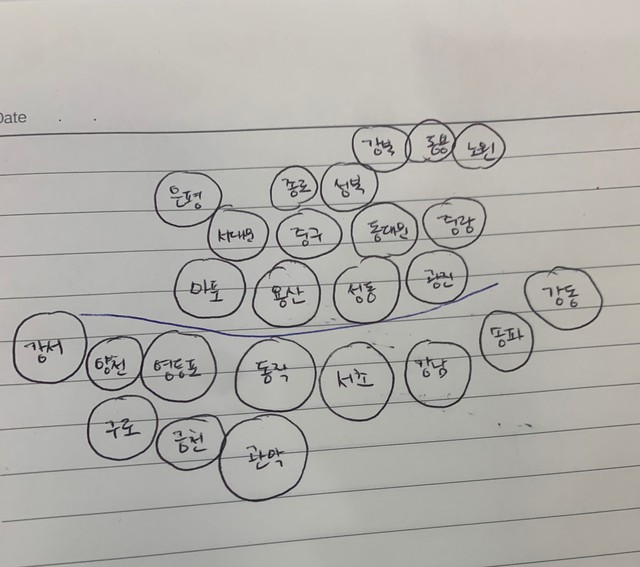 Date . .
강북 도봉 노원
은평 종로 성북
서대문 중구 동대문 중랑
마포 용산 성동 광진
강동
강서 양천 영등포 동작 서초 강남 송파
구로 금천 관악